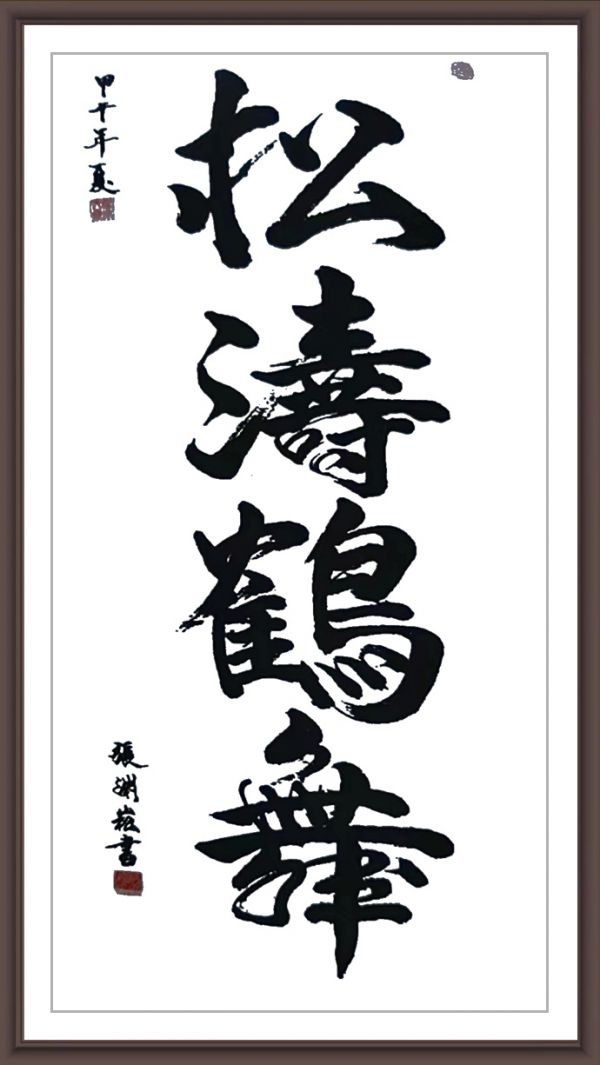 松濤鶴舞
甲午年夏
張淵崧書